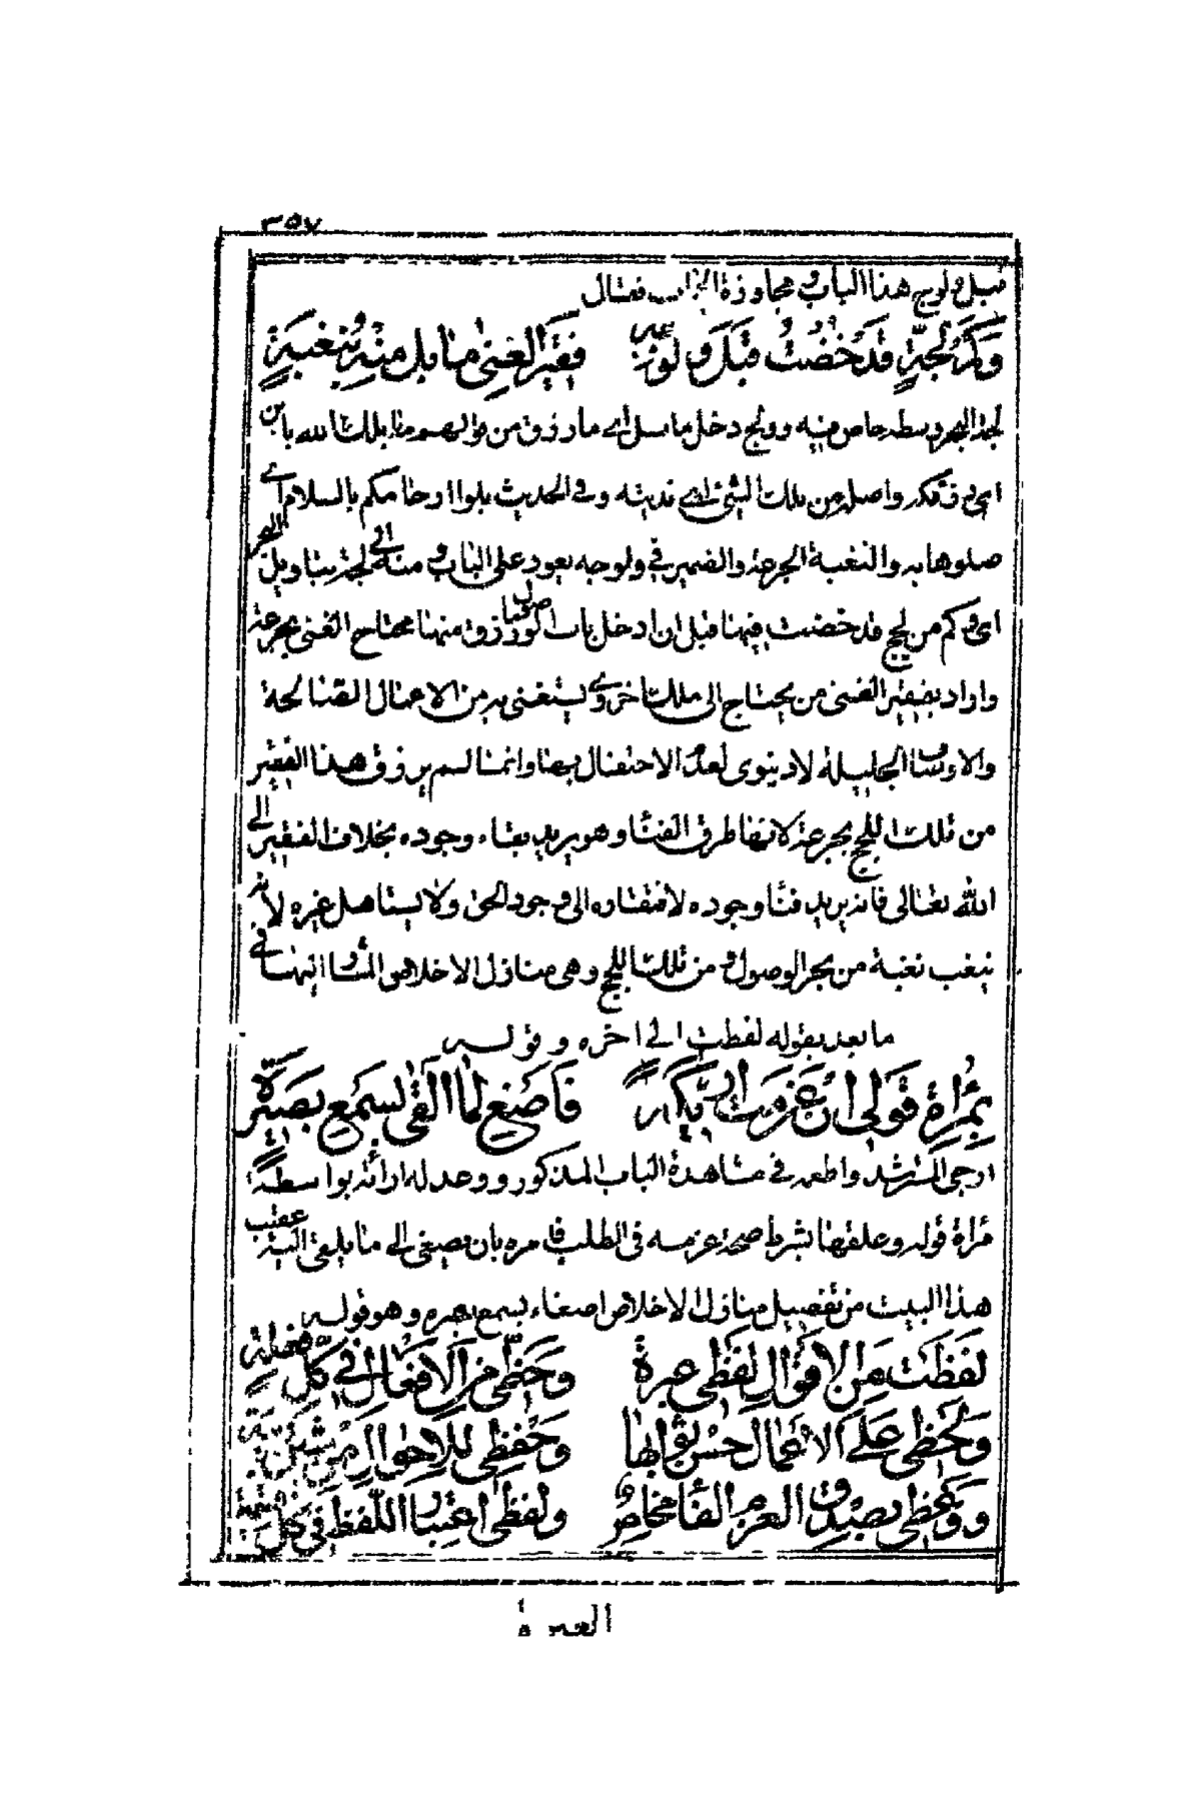 ٣٥٧
قبل ولوج هذا الباب ومجاوزة فقال
وكم لجة قد خضت قبل ولوجه فقير الغنى ما بل منها بنغبة
لجة البحر وسطه خاض فيه وولج دخل ما بل اى ما رزق من قولهم منا بللت الله بابن
اى رزقكه واصله من بللت الشئ اى نديته وفي الحديث بلوا ارحامكم بالسلام اى
صلوها به والنغبة الجرعة والضمير في ولوجه يعود على الباب و منه الى لجة بتاويل البحر
اى وكم من لجج قد خضت فيها قبل ان ادخل باب رزق منها محتاج الغنى بجرعة
واراد بفقير الغنى من يحتاج الى ملك اخروى ليستغنى به من الاعمال الصالحة
والاوصاف الجليلة لا دنيوى لعدم الاحتفال بها وانما لم يرزق هذا الفقير
من تلك اللجج بجرعة لانها طرق الفناء وهو يريد بقاء وجوده بخلاف الفقير الى
الله تعالى فانه يريد فناء وجوده لافتقاره الى وجود الحق ولا يستاهل غيره لان
ينغب نغبة من بحر الوصول و من تلك اللجج وهي منازل الاخلاص المشار اليها في
ما بعد بقوله لفظت الى اخره و قوله
بمرآة قولى ان عزمت اريكه فاصغ لما القى بسمع بصيرة
ارجى المسترشد واطمعه في مشاهدة الباب المذكور ووعد له ارائه بواسطة
مرآة قوله وعلقها بشرط صحة عزيمته فى الطلب فامره بان يصغى الى ما يلقى اليه عقيب
هذا البيت من تفصيل منازل الاخلاص اصغاء بسمع بصيره وهو قوله
لفظت من الاقوال لفظى عبرة وحظى من الافعال في كل فعلة
ولحظى على الاعمال حسن ثوابها وحفظى للاحوال من شين ريبة
ووعظى بصدق العزم الفاء مخلص ولفظى اعتبار اللفظ في كل قسمة
العبرة